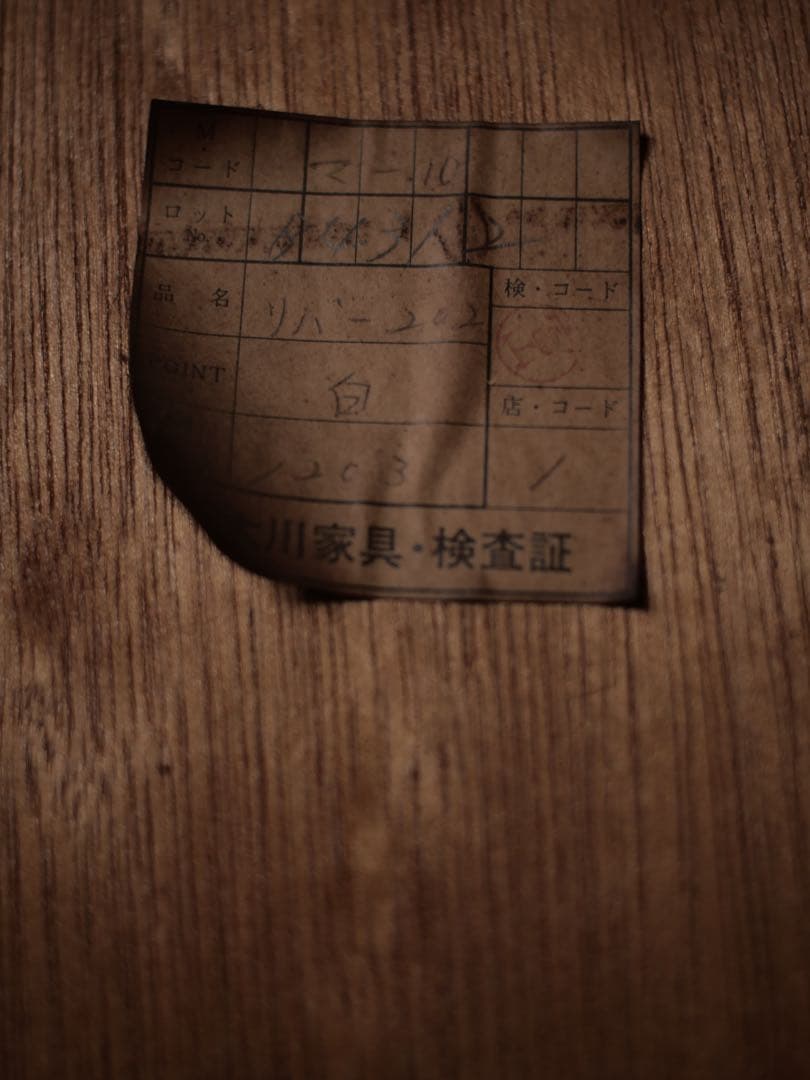 M・コード マ-.10
ロット No.
品名 リバー202
検・コード
POINT 白
店・コード
1203 1
川家具・検査証